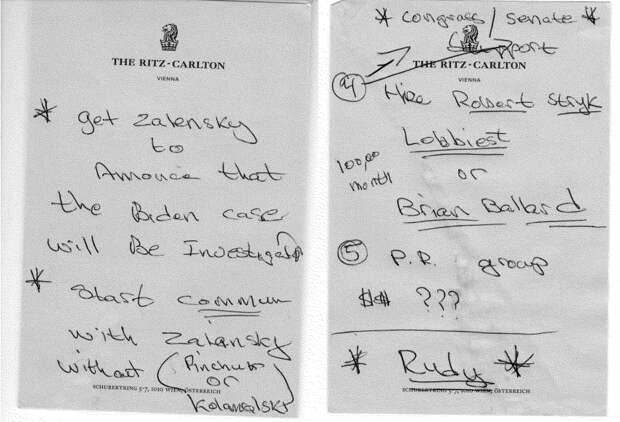 THE RITZ-CARLTON
VIENNA
* get Zalensky
to
Annouce that
the Biden case
will Be Investigated
* Start commun
with Zalansky
without (Pinchuk
or
Kolamalsky)
SCHUBERTRING 5-7, 1010 WIEN, ÖSTERREICH
* congrass / Senate *
support
THE RITZ-CARLTON
VIENNA
Hire Robert Stryk
Lobbiest
100,00
month
or
Brian Ballard
5 P.R. group
$$ ???
* Rudy *
SCHUBERTRING 5-7, 1010 WIEN, ÖSTERREICH